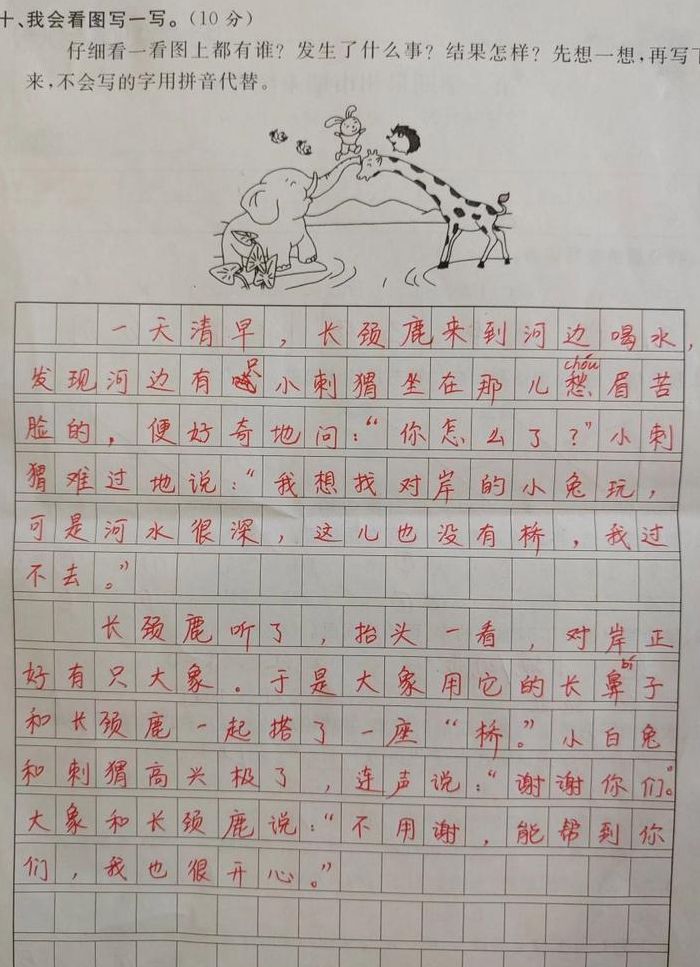 十、我会看图写一写。(10分)
仔细看一看图上都有谁?发生了什么事?结果怎样?先想一想,再写下
来,不会写的字用拼音代替。
一天清早,长颈鹿来到河边喝水,
chóu
发现河边有只小刺猬坐在那儿愁眉苦
脸的,便好奇地问:“你怎么了?”小刺
猬难过地说:“我想找对岸的小兔玩,
可是河水很深,这儿也没有桥,我过
不去。”
长颈鹿听了,抬头一看,对岸正
bí
好有只大象。于是大象用它的长鼻子
和长颈鹿一起搭了一座“桥。”小白兔
和刺猬高兴极了,连声说:“谢谢你们。
大象和长颈鹿说:“不用谢,能帮到你
们,我也很开心。”